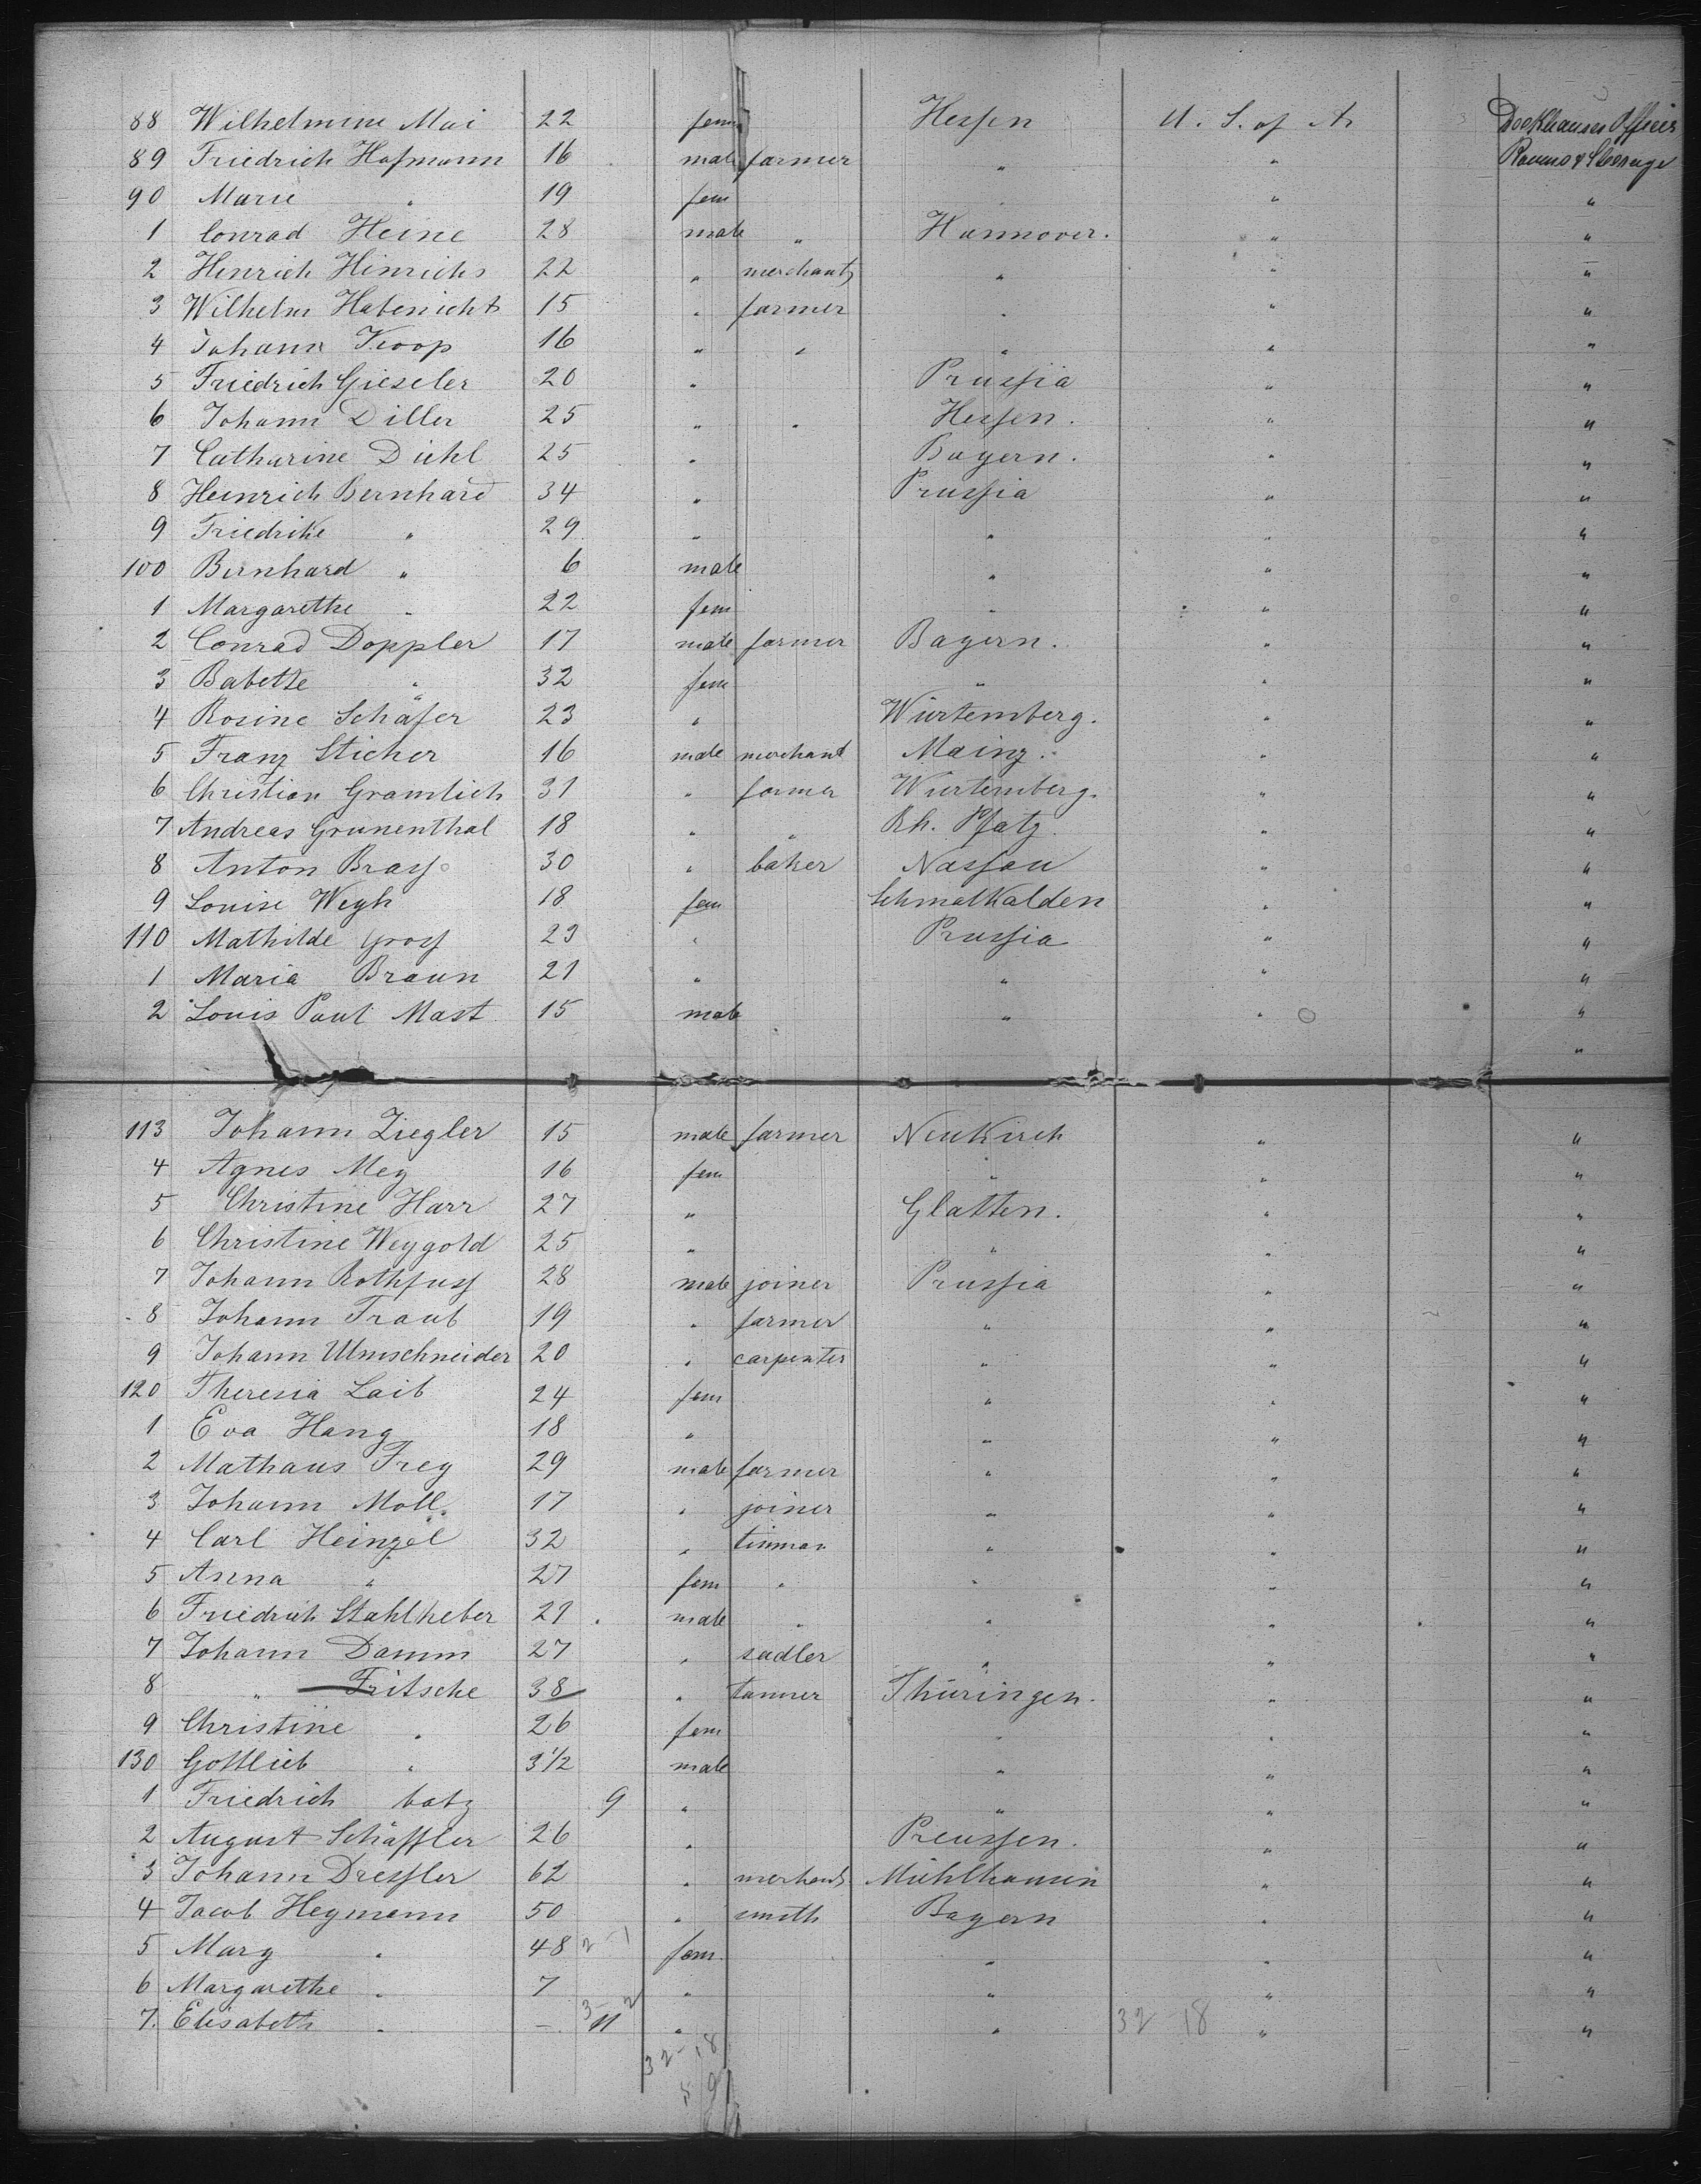 88 Wilhelmine Mai 22 fem Hessen U. S. of A.
89 Friedrich Hofmann 16 male farmer " "
90 Marie " 19 fem " " "
1 Conrad Heine 28 male " Hannover. " "
2 Hinrich Hinrichs 22 " merchant " " "
3 Wilhelm Habenicht 15 " farmer " " "
4 Johann Koop 16 " " " " "
5 Friedrich Gieseler 20 " Prussia " "
6 Johann Diller 25 " " Hessen. " "
7 Catharine Diehl 25 " Bayern. " "
8 Heinrich Bernhard 34 " Prussia " "
9 Friedrike " 29 " " " "
100 Bernhard " 6 male " " "
1 Margarethe " 22 fem " " "
2 Conrad Doppler 17 male farmer Bayern. " "
3 Babette " 32 fem " " "
4 Rosine Schäfer 23 " Würtemberg. " "
5 Franz Sticher 16 male merchant Mainz. " "
6 Christian Gramlich 31 " farmer Würtemberg. " "
7 Andreas Grunenthal 18 " " Rh. Pfalz. " "
8 Anton Brass 30 " baker Nassau " "
9 Louise Weyh 18 fem Schmalkalden " "
110 Mathilde Gross 23 " Prussia " "
1 Maria Braun 21 " " " "
2 Louis Paul Mast 15 male " " "
"
113 Johann Ziegler 15 male farmer Neukirch " "
4 Agnes Mey 16 fem " " "
5 Christine Harr 27 " Glatten. " "
6 Christine Weygold 25 " " " "
7 Johann Rothfuss 28 male joiner Prussia " "
8 Johann Traub 19 " farmer " " "
9 Johann Ulmschneider 20 " carpenter " " "
120 Theresia Laib 24 fem " " "
1 Eva Hang 18 " " " "
2 Mathaus Frey 29 male farmer " " "
3 Johann Moll 17 " joiner " " "
4 Carl Heinzel 32 " tinman " " "
5 Anna " 27 fem " " " "
6 Friedrich Stahlheber 21 male " " " "
7 Johann Damm 27 " sadler " " "
8 " Fritsche 38 " tanner Thüringen. " "
9 Christine " 26 fem " " "
130 Gottlieb " 3 1/2 male " " "
1 Friedrich 9 " " " "
2 August Schäffler 26 " Preussen. " "
3 Johann Dressler 62 " merchant Mühlhausen " "
4 Jacob Heymann 50 " smith Bayern " "
5 Marg " 48 fem. " " "
6 Margarethe " 7 " " " "
7. Elisabeth " - 11 " " 32 18 " "
32-18